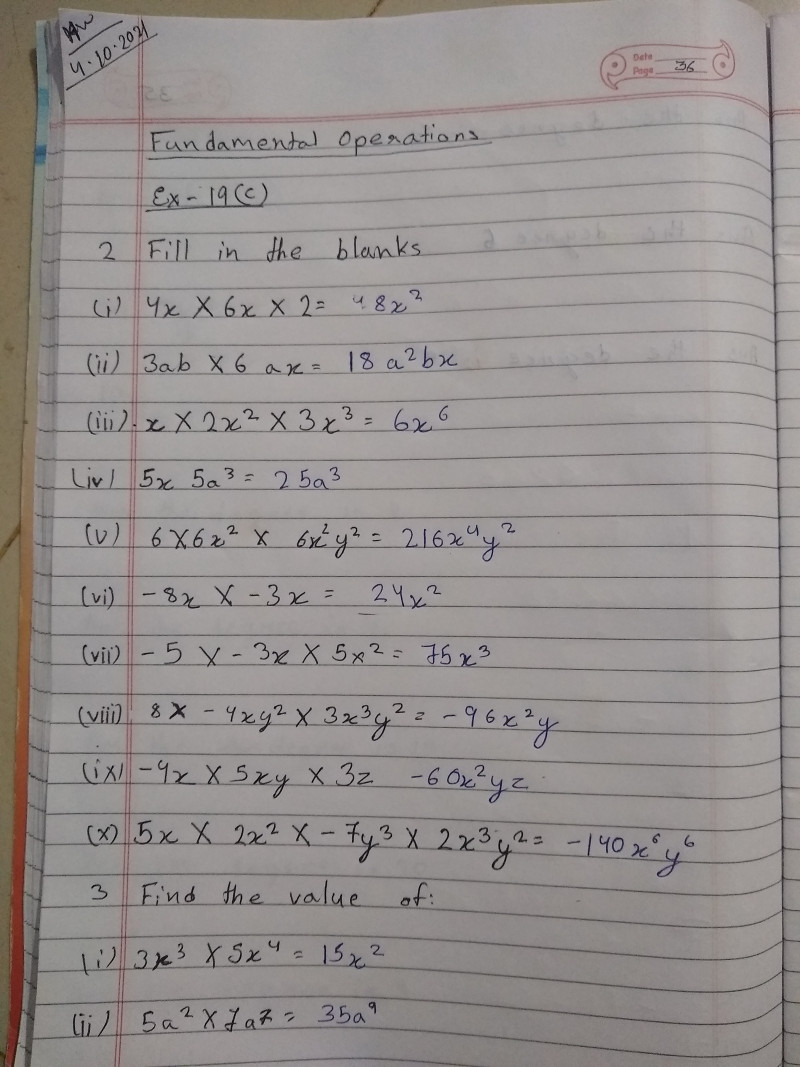 HW
4.10.2021
Date
Page 36
Fundamental Operations
Ex-19(c)
2 Fill in the blanks
(i) 4x × 6x × 2 = 48x²
(ii) 3ab × 6 ax = 18 a²bx
(iii) x × 2x² × 3x³ = 6x⁶
(iv) 5x 5a³ = 25a³
(v) 6×6x² × 6x²y² = 216x⁴y²
(vi) -8x × -3x = 24x²
(vii) -5 × -3x × 5x² = 75x³
(viii) 8× -4xy² × 3x³y² = -96x²y
(ix) -4x × 5xy × 3z -60x²yz
(x) 5x × 2x² × -7y³ × 2x³y² = -140x⁶y⁶
3 Find the value of:
(i) 3x³ × 5x⁴ = 15x²
(ii) 5a² × 7a⁷ = 35a⁹